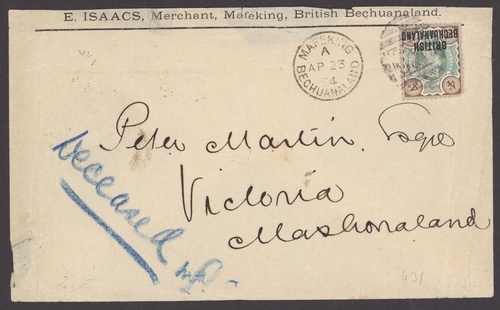 E. ISAACS, Merchant, Mafeking, British Bechuanaland.
MAFEKING
A
AP 23
94
BECHUANALAND
BRITISH
BECHUANALAND
Peter Martin Esqre
Victoria
Mashonaland
Deceased
431